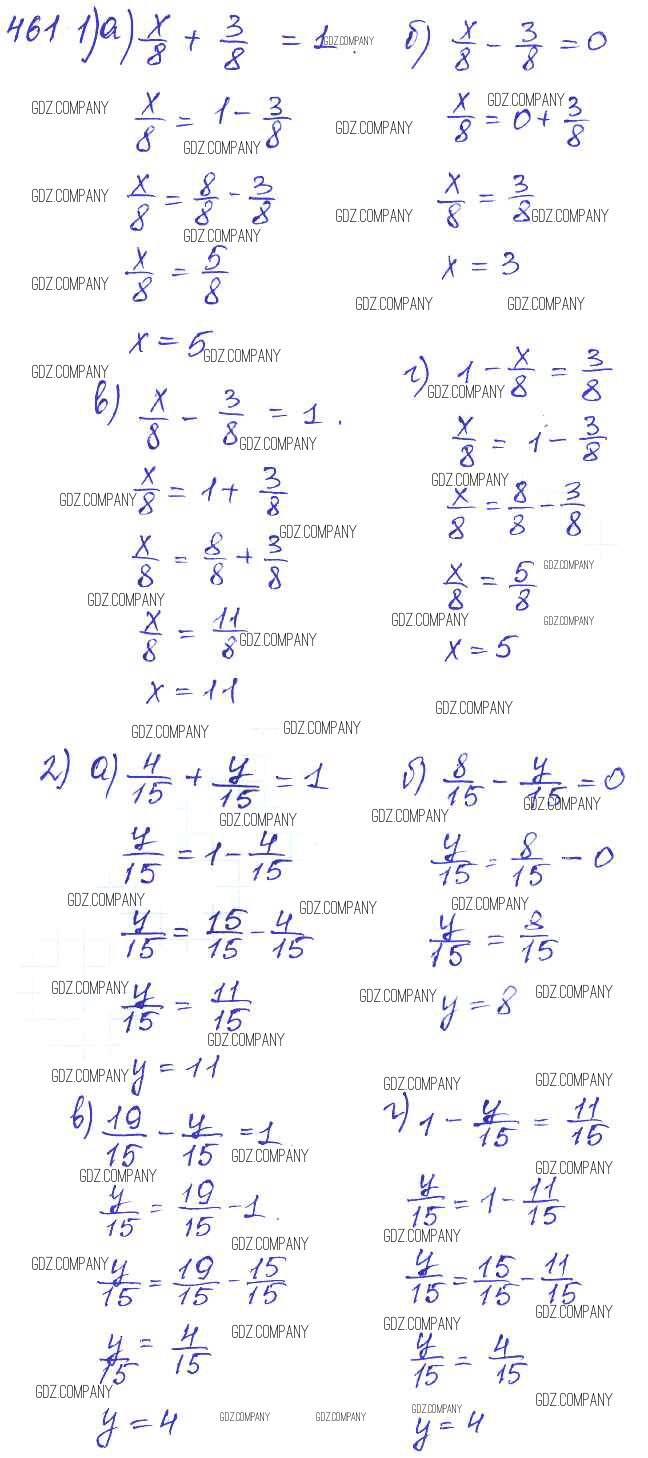 461 1) а) x/8 + 3/8 = 1.
x/8 = 1 - 3/8
x/8 = 8/8 - 3/8
x/8 = 5/8
x = 5
б) x/8 - 3/8 = 0
x/8 = 0 + 3/8
x/8 = 3/8
x = 3
в) x/8 - 3/8 = 1.
x/8 = 1 + 3/8
x/8 = 8/8 + 3/8
x/8 = 11/8
x = 11
г) 1 - x/8 = 3/8
x/8 = 1 - 3/8
x/8 = 8/8 - 3/8
x/8 = 5/8
x = 5
2) а) 4/15 + y/15 = 1
y/15 = 1 - 4/15
y/15 = 15/15 - 4/15
y/15 = 11/15
y = 11
б) 8/15 - y/15 = 0
y/15 = 8/15 - 0
y/15 = 8/15
y = 8
в) 19/15 - y/15 = 1
y/15 = 19/15 - 1.
y/15 = 19/15 - 15/15
y/15 = 4/15
y = 4
г) 1 - y/15 = 11/15
y/15 = 1 - 11/15
y/15 = 15/15 - 11/15
y/15 = 4/15
y = 4
GDZ.COMPANY